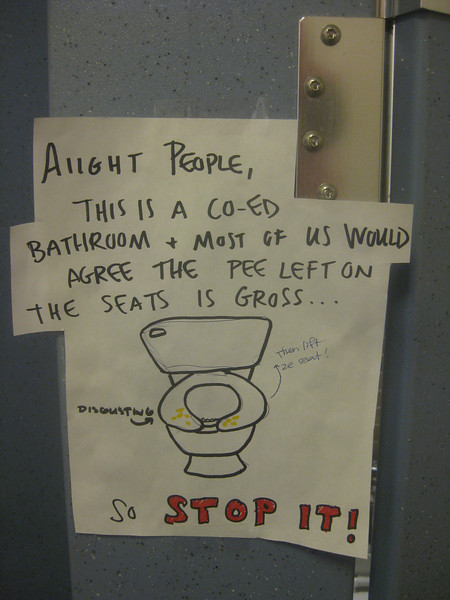 AIIGHT PEOPLE,
THIS IS A CO-ED
BATHROOM + MOST OF US WOULD
AGREE THE PEE LEFT ON
THE SEATS IS GROSS...
then lift
ze seat!
DISGUSTING
So STOP IT!